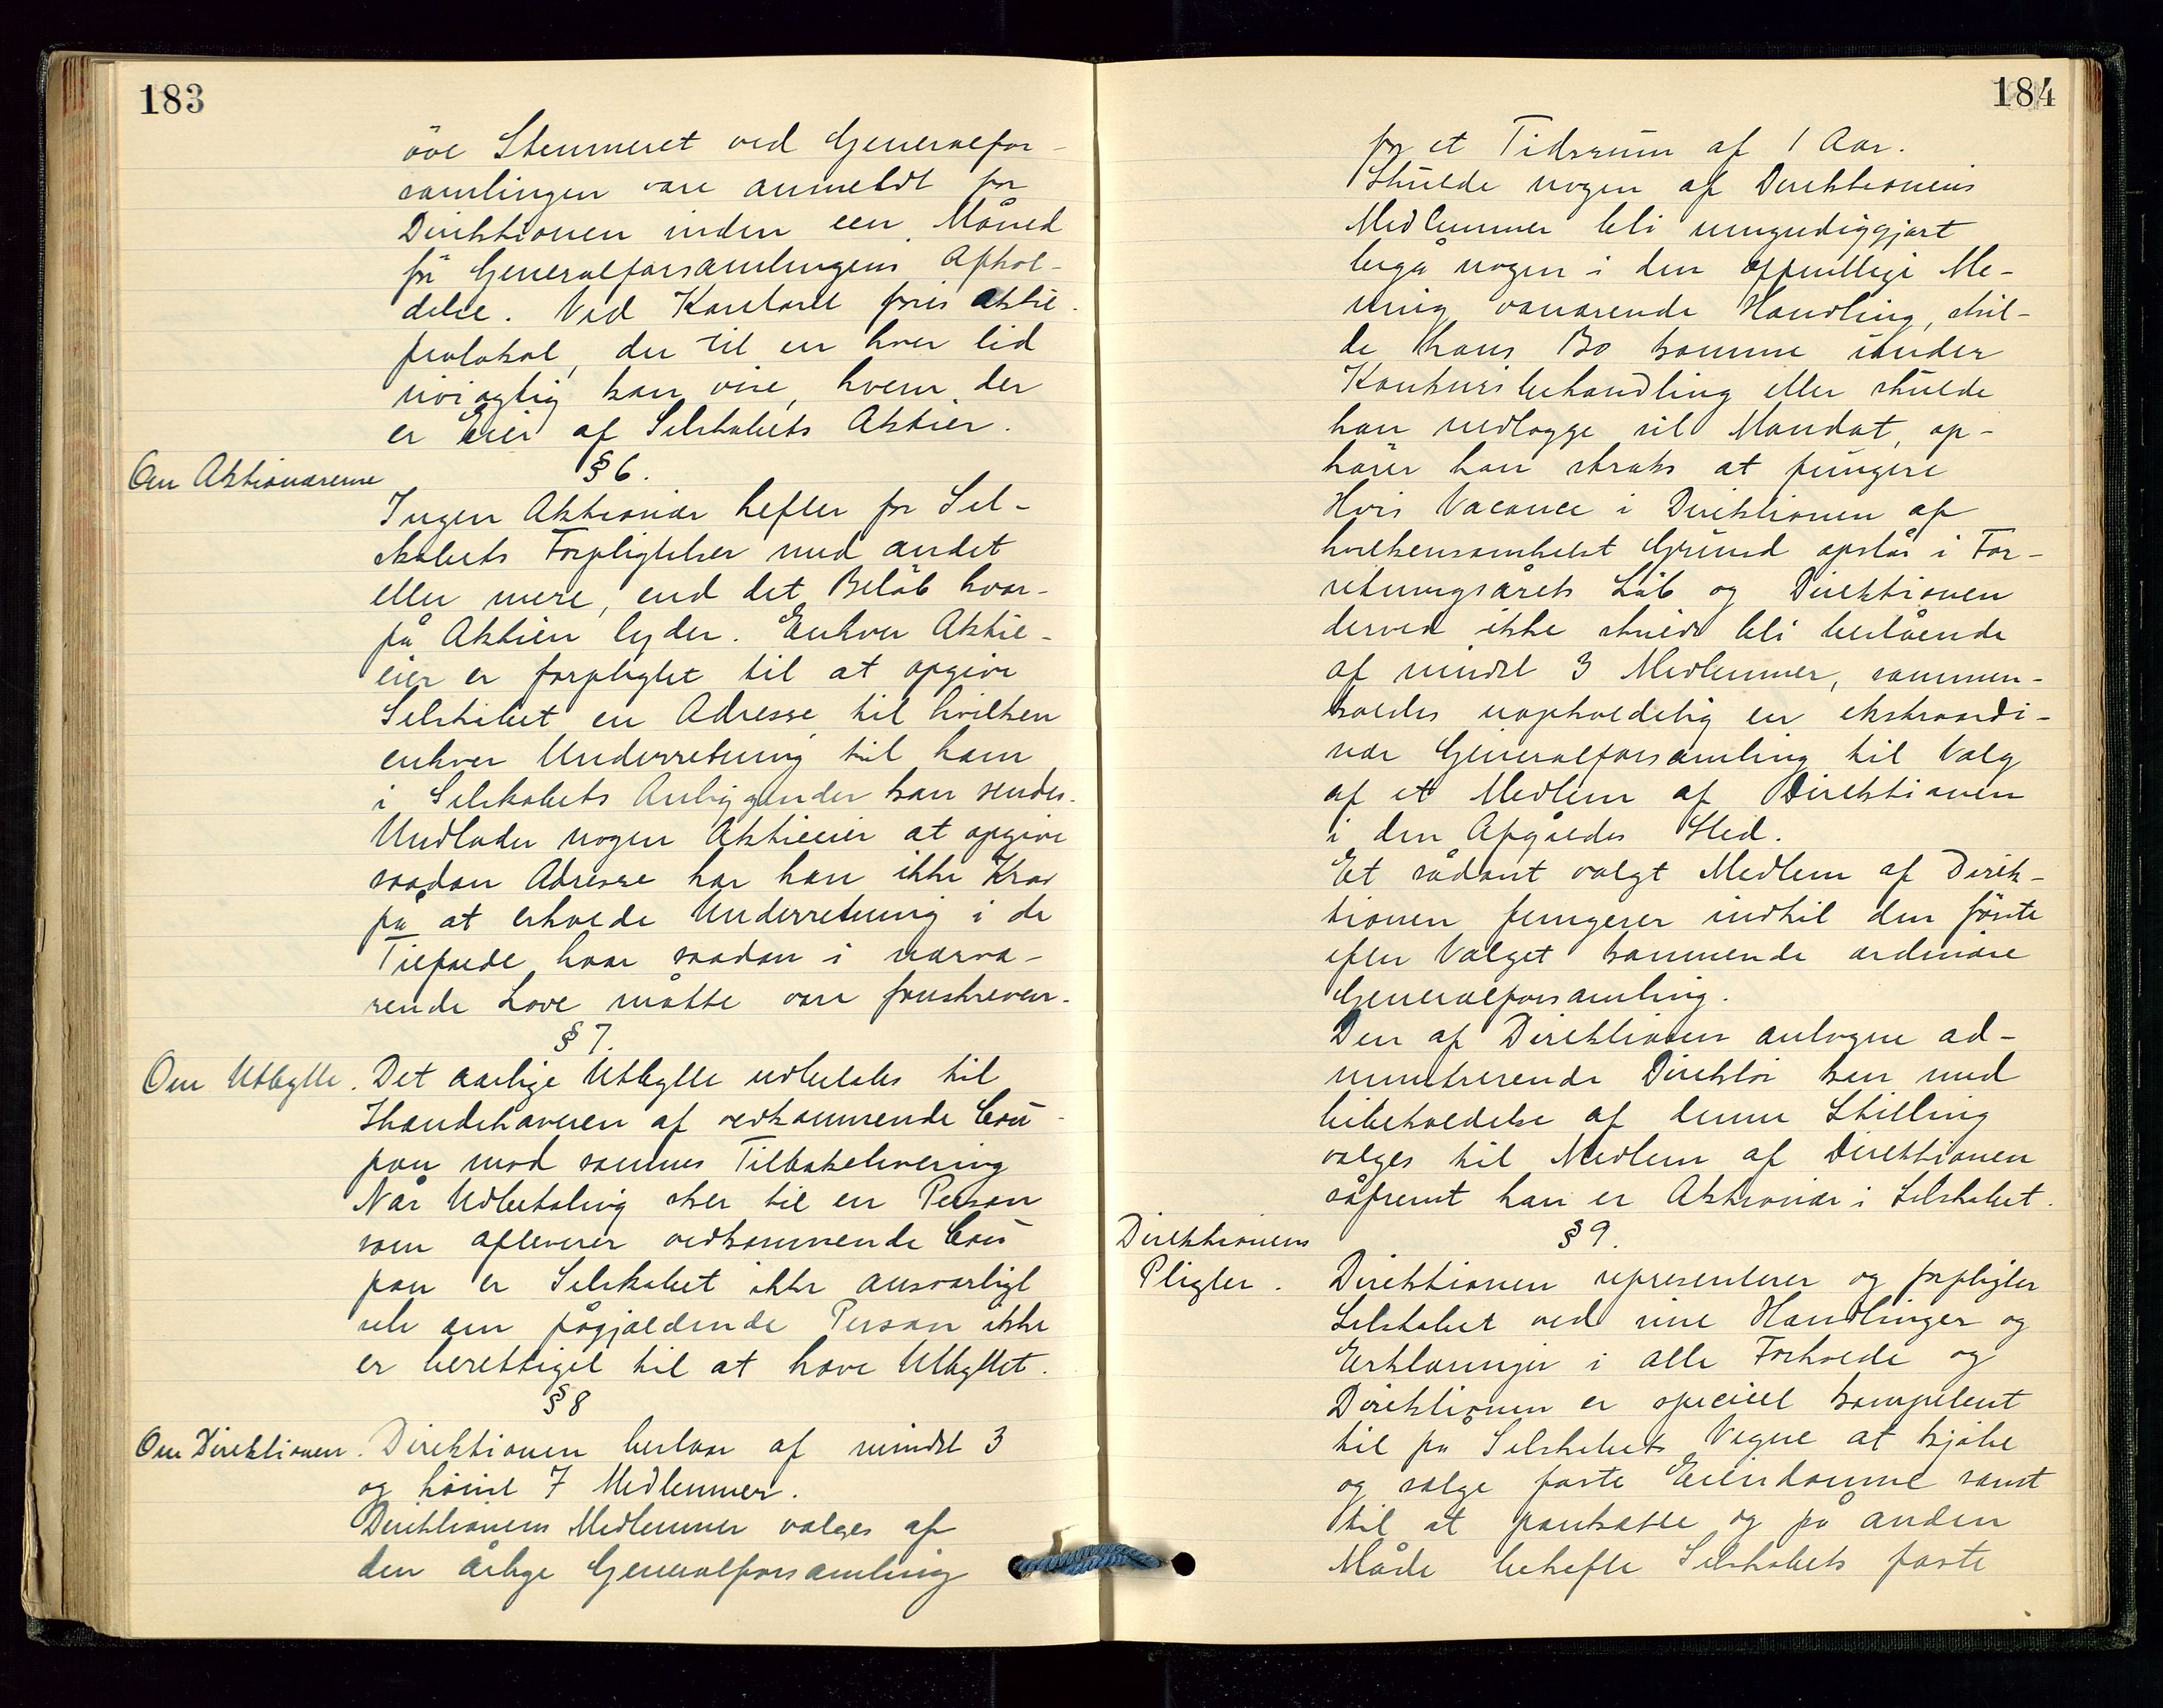 183
öve Stemmeret ved Generalfor-
samlingen være anmeldt for
Direktionen inden een Måned
för Generalforsamlingens Afhol-
delse. Ved Kontoret föris Aktie-
protokol, der til en hver tid
nöiagtig kan vise, hvem der
er Eier af Selskabets Aktier.
Om Aktionærerne
§ 6.
Ingen Aktionær hefter for Sel-
skabets Forpligtelser med andet
eller mere, end det Beløb hvor-
på Aktien lyder. Enhver Aktie-
eier er forpligtet til at opgive
Selskabet en Adresse til hvilken
enhver Underretning til ham
i Selskabets Anliggender kan sendes.
Undlader nogen Aktieeier at opgive
saadan Adresse har han ikke Krav
på at erholde Underretning i de
Tilfælde hvor saadan i nærvæ-
rende Love måtte være foreskreven.
§ 7.
Om Utbytte.
Det aarlige Utbytte udbetales til
Ihændehaveren af vedkommende Cou-
pon mod sammes Tilbakelevering
Når Udbetaling sker til en Person
som afleverer vedkommende Cou-
pon er Selskabet ikke ansvarligt
selv om pågjældende Person ikke
er berettiget til at hæve Utbyttet.
§ 8
Om Direktionen.
Direktionen bestaar af mindst 3
og höist 7 Medlemmer.
Direktionens Medlemmer vælges af
den årlige Generalforsamling
184
for et Tidsrum af 1 Aar.
Skulde nogen af Direktionens
Medlemmer bli umyndiggjort
begå nogen i den offentlige Me-
ning vanærende Handling, skul-
de hans Bo komme under
Konkursbehandling eller skulde
han nedlægge sit Mandat, op-
hörer han straks at fungere
Hvis Vacance i Direktionen af
hvilkensomhelst Grund opstår i For-
retningsårets Löb og Direktionen
derved ikke skulde bli bestående
af mindst 3 Medlemmer, sammen-
kaldes uopholdelig en ekstraordi-
nær Generalforsamling til Valg
af et Medlem af Direktionen
i den Afgåedes Sted.
Et sådant valgt Medlem af Direk-
tionen fungerer indtil den förste
efter Valget kommende ordinære
Generalforsamling.
Den af Direktionen antagne ad-
ministrerende Direktör kan med
bibeholdelse af denne Stilling
vælges til Medlem af Direktionen
såfremt han er Aktionær i Selskabet.
Direktionens
Pligter.
§ 9.
Direktionen representerer og forpligter
Selskabet ved sine Handlinger og
Erklæringer i alle Forholde og
Direktionen er speciel kompetent
til på Selskabets Vegne at kjøbe
og sælge faste Eiendomme samt
til at pantsætte og på anden
Måde behefte Selskabets faste